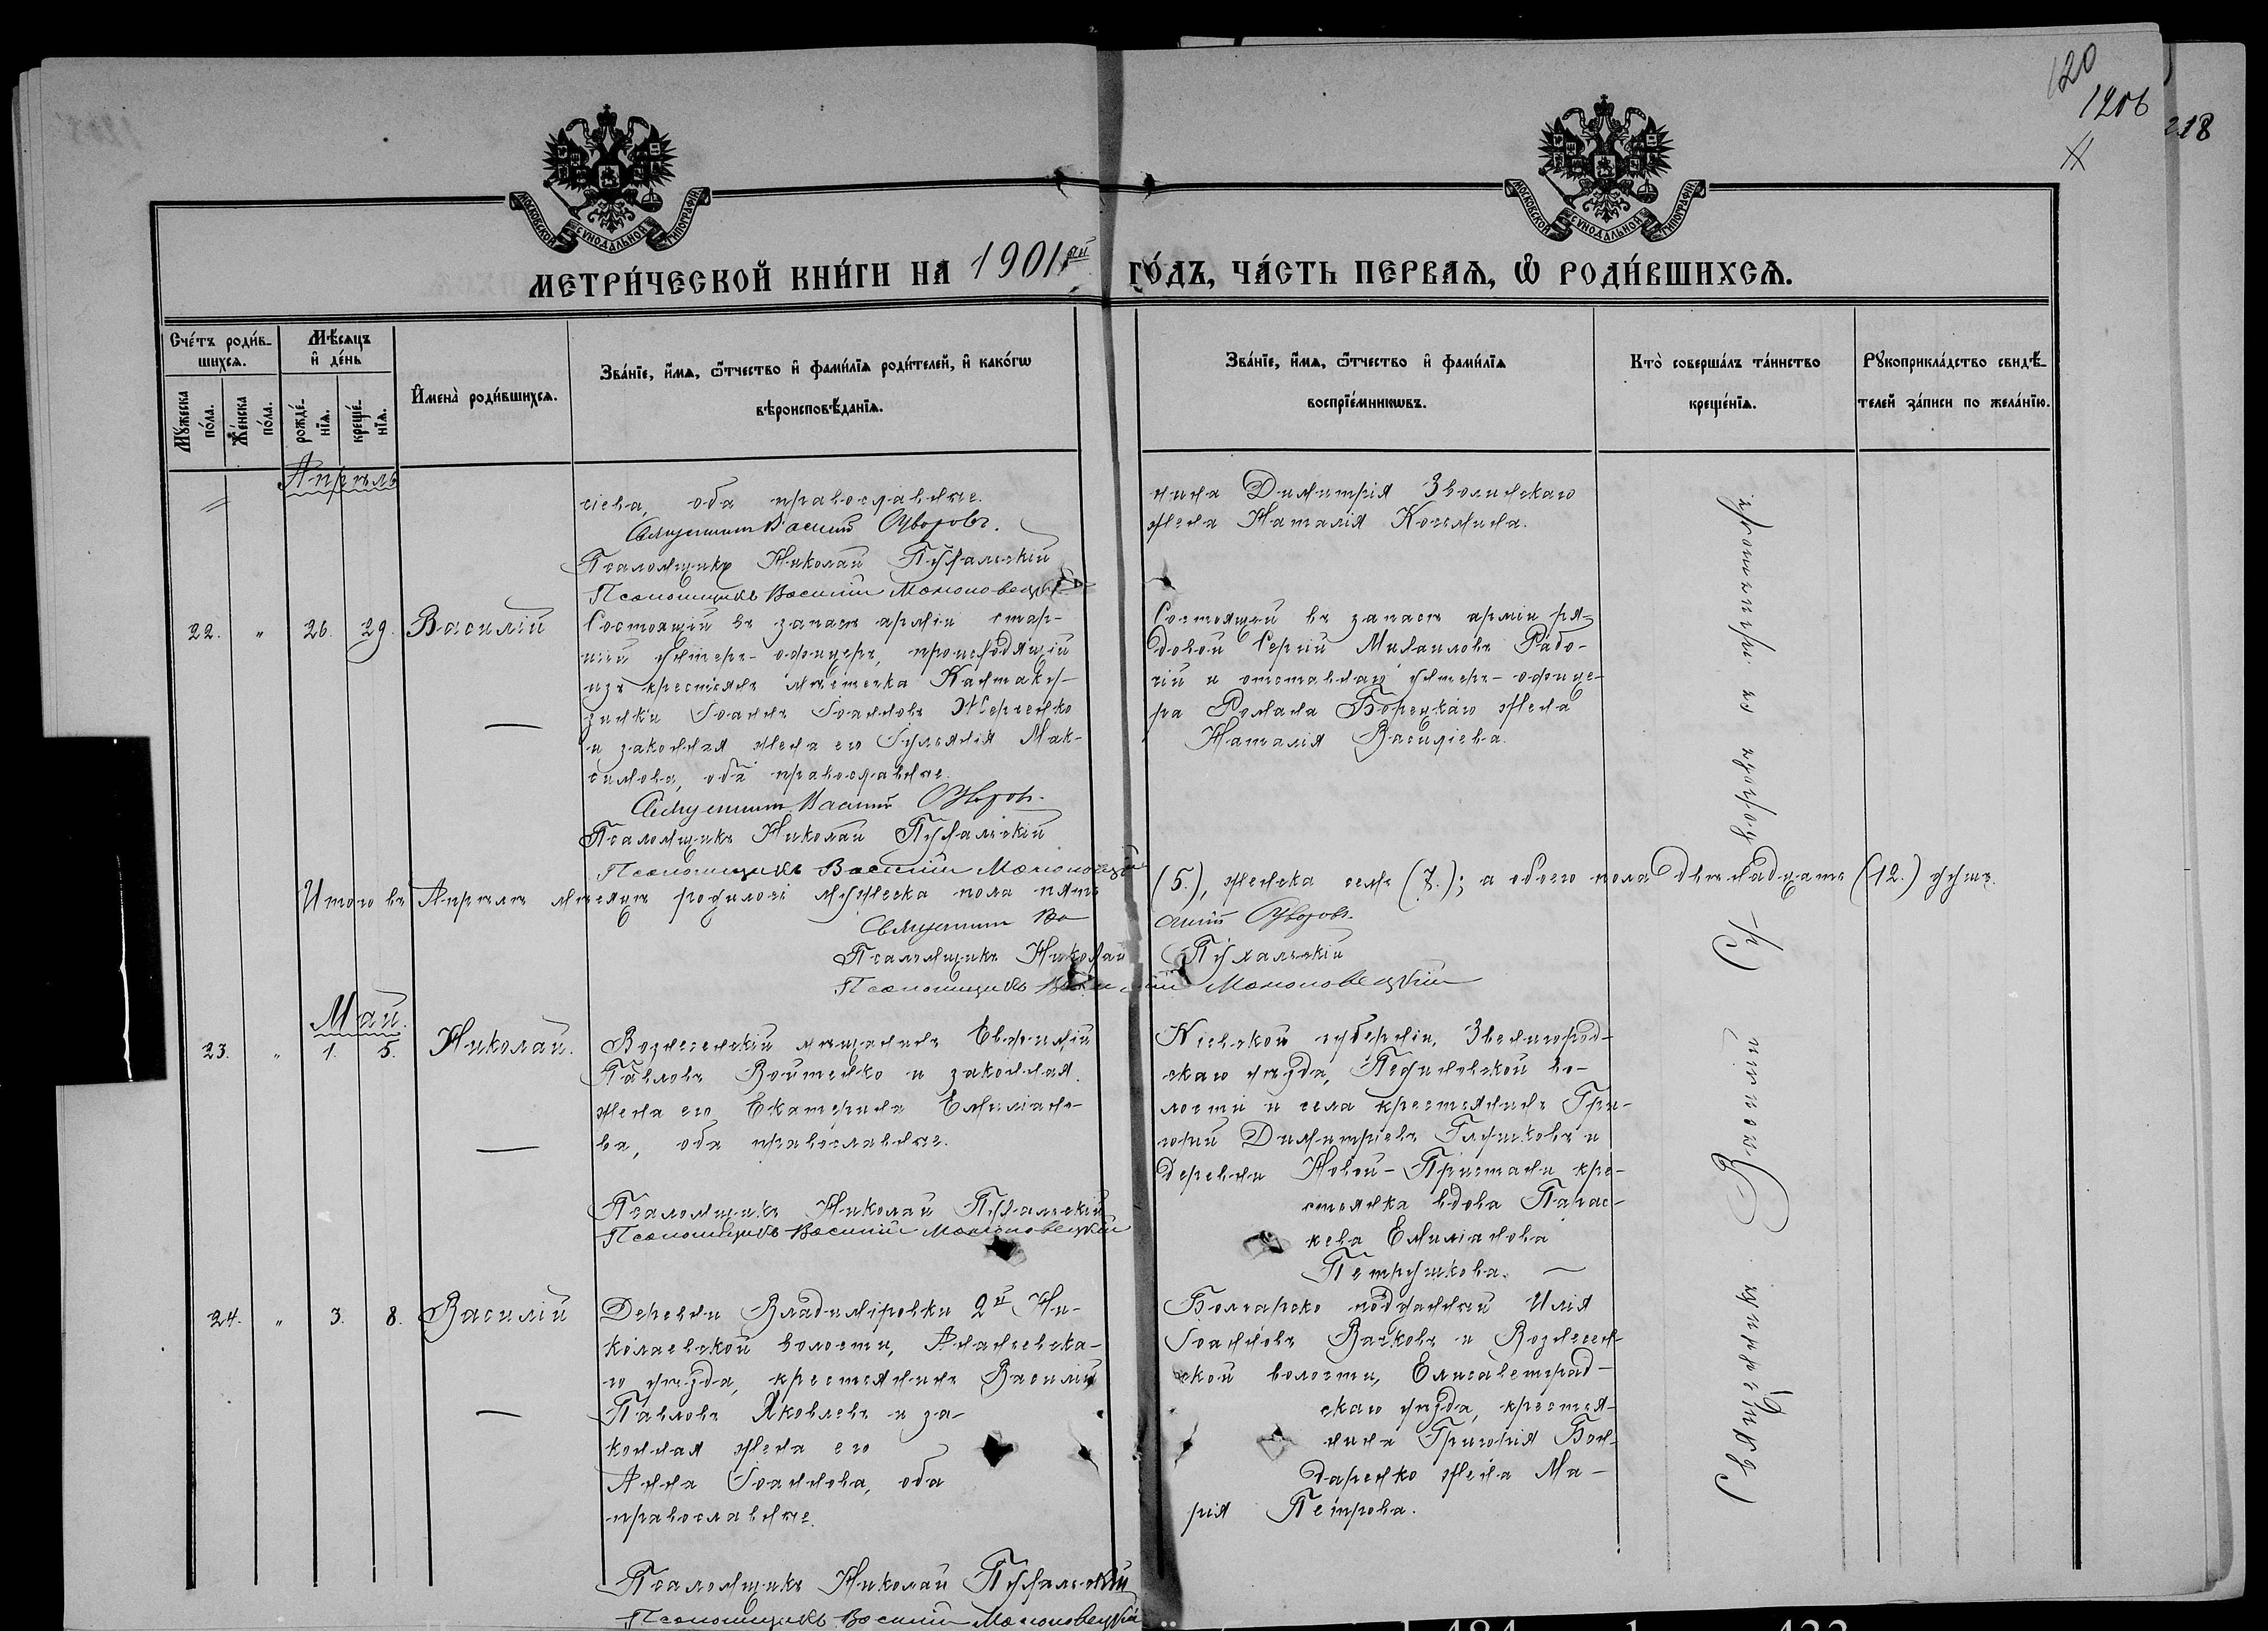 120
1206
218
МОСКОВСКОЙ СУНОДАЛЬНОЙ ТИПОГРАФІИ
МОСКОВСКОЙ СУНОДАЛЬНОЙ ТИПОГРАФІИ
МЕТРИ́ЧЕСКОЙ КНИ́ГИ НА 1901ый ГО́ДЪ, ЧА́СТЬ ПЕРВАѦ, Ѡ҆ РОДИ́ВШИХСѦ.
Сче́тъ роди́в-
шихсѧ.
Мꙋ́жеска по́ла.
Же́нска по́ла.
Мѣ́сѧцъ
и҆ де́нь
рожде́-
нїѧ.
креще́-
нїѧ.
И҆мена̀ роди́вшихсѧ.
Зва́нїе, и҆́мѧ, ѻ҆́тчество и҆ фами́лїѧ роди́телей, и҆ како́гѡ
вѣроисповѣ́данїѧ.
Зва́нїе, и҆́мѧ, ѻ҆́тчество и҆ фами́лїѧ
воспрїе́мникѡвъ.
Кто̀ соверша́лъ та́инство
креще́нїѧ.
Рꙋкоприкла́дство свидѣ́-
телей за́писи по жела́нїю.
Апрѣль
сіева, оба православные.
Священникъ Василій
Псаломщикъ Николай Пухальскій
Псаломщикъ Василій
нина Димитрія Зволинскаго
жена Наталія Козьмина.
22. " 26. 29. Василій
Состоящій въ запасѣ арміи стар-
шій унтеръ-офицеръ, происходящій
изъ крестьянъ мѣстечка Кантаку-
зинки Іоаннъ Іоанновъ
и законная жена его Іуліанія Мак-
симова, оба православные.
Священникъ Василій
Псаломщикъ Николай Пухальскій
Псаломщикъ Василій
Состоящій въ запасѣ арміи ря-
довой Сергій Михаиловъ Рабо-
чій и отставнаго унтеръ-офице-
ра Романа Борецкаго жена
Наталія Василіева.
Итого въ Апрѣлѣ мѣсяцѣ родилось мужеска пола пять (5.), женска семь (7.); а обоего пола двѣнадцать (12.) душъ.
Священникъ Василій
Псаломщикъ Николай Пухальскій
Псаломщикъ Василій
Май.
23. " 1. 5. Николай.
Вознесенскій мѣщанинъ Евфимій
Павловъ Войтенко и законная
жена его Екатерина Емиліано-
ва, оба православные.
Псаломщикъ Николай Пухальскій
Псаломщикъ Василій
Кіевской губерніи, Звенигород-
скаго уѣзда, во-
лости и села крестьянинъ Гри-
горій Димитріевъ Глушковъ и
деревни Новой-Пристани кре-
стьянка вдова Парас-
кева Емиліанова
Петрушкова.
24. " 3. 8. Василій
Деревни Владиміровки 2й Ни-
колаевской волости, Ананьевска-
го уѣзда, крестьянинъ Василій
Павловъ Яковлевъ и за-
конная жена его
Анна Іоаннова, оба
православные.
Псаломщикъ Николай Пухальскій
Псаломщикъ Василій
Болгарско подданный Илія
Іоанновъ Вачковъ и Вознесен-
ской волости, Елисаветград-
скаго уѣзда, крестья-
нина Григорія Бон-
даренко жена Ма-
рія Петрова.
484 1 433